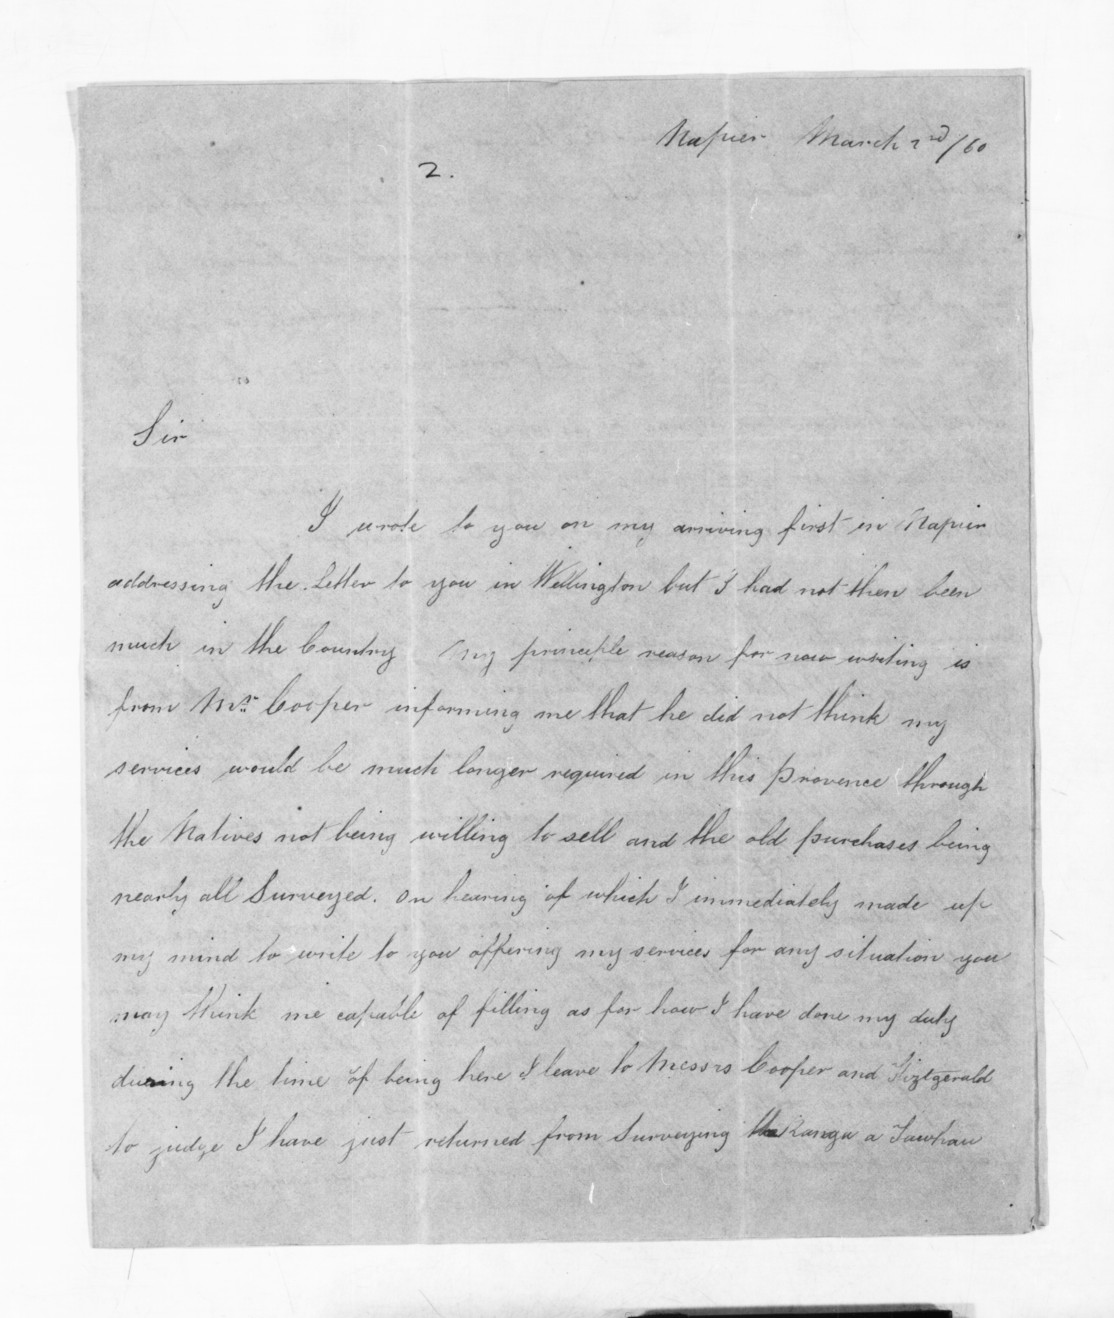 Napier March 2nd/60
2.
Sir
I wrote to you on my arriving first in Napier
addressing the Letter to you in Wellington but I had not then been
much in the Country My principle reason for now writing is
from Mr Cooper informing me that he did not think my
services would be much longer required in this Provence through
the Natives not being willing to sell and the old purchases being
nearly all Surveyed. On hearing of which I immediately made up
my mind to write to you offering my services for any situation you
may think me capable of filling as for how I have done my duty
during the time of being here I leave to Messrs Cooper and Fitzgerald
to judge I have just returned from Surveying Ranga a Tawhau